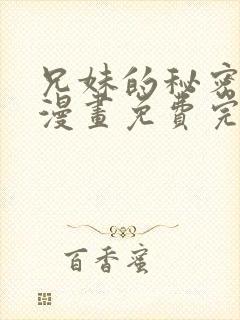 兄妹的秘密
漫畫免費完
百香蜜